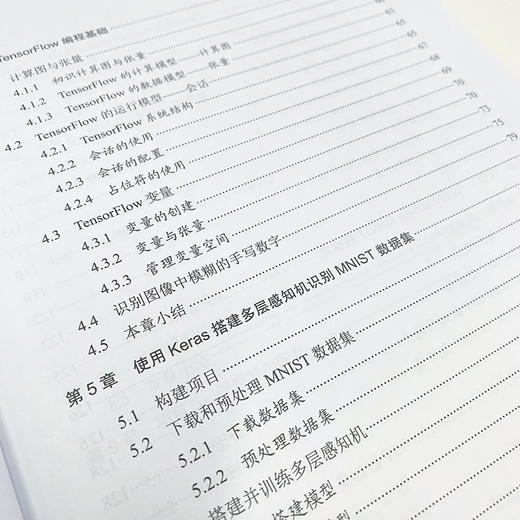 TensorFlow 编程基础
计算图与张量
4.1.1 初识计算图与张量
4.1.2 TensorFlow 的计算模型——计算图
4.1.3 TensorFlow 的数据模型——张量
4.2 TensorFlow 的运行模型——会话
4.2.1 TensorFlow 系统结构
4.2.2 会话的使用
4.2.3 会话的配置
4.2.4 占位符的使用
4.3 TensorFlow 变量
4.3.1 变量的创建
4.3.2 变量与张量
4.3.3 管理变量空间
4.4 识别图像中模糊的手写数字
4.5 本章小结
第 5 章 使用 Keras 搭建多层感知机识别 MNIST 数据集
5.1 构建项目
5.2 下载和预处理 MNIST 数据集
5.2.1 下载数据集
5.2.2 预处理数据集
搭建并训练多层感知机
搭建模型
63
65
67
70
70
73
75
79